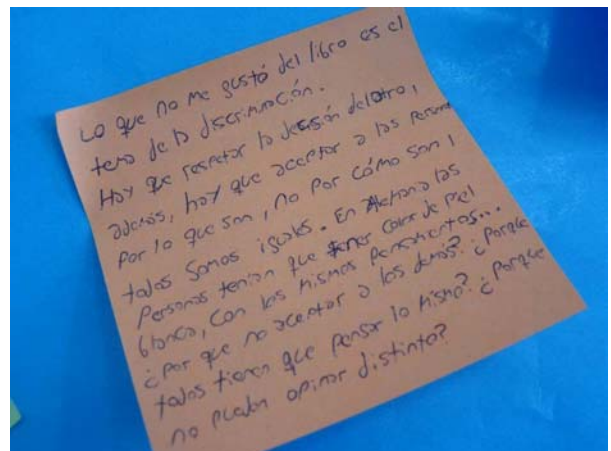 Lo que no me gustó del libro es el
tema de la discriminación.
Hay que respetar la desición del otro,
además, hay que aceptar a las personas
por lo que son, no por cómo son,
todos somos iguales. En Alemania las
personas tenían que tener color de piel
blanca, con los mismos pensamientos...
¿Por que no aceptar a los demás? ¿Porque
todos tienen que pensar lo mismo? ¿Porque
no puedan opinar distinto?